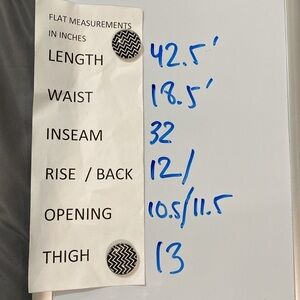 FLAT MEASUREMENTS
IN INCHES
LENGTH 42.5'
WAIST 18.5'
INSEAM 32
RISE / BACK 12/
OPENING 10.5/11.5
THIGH 13